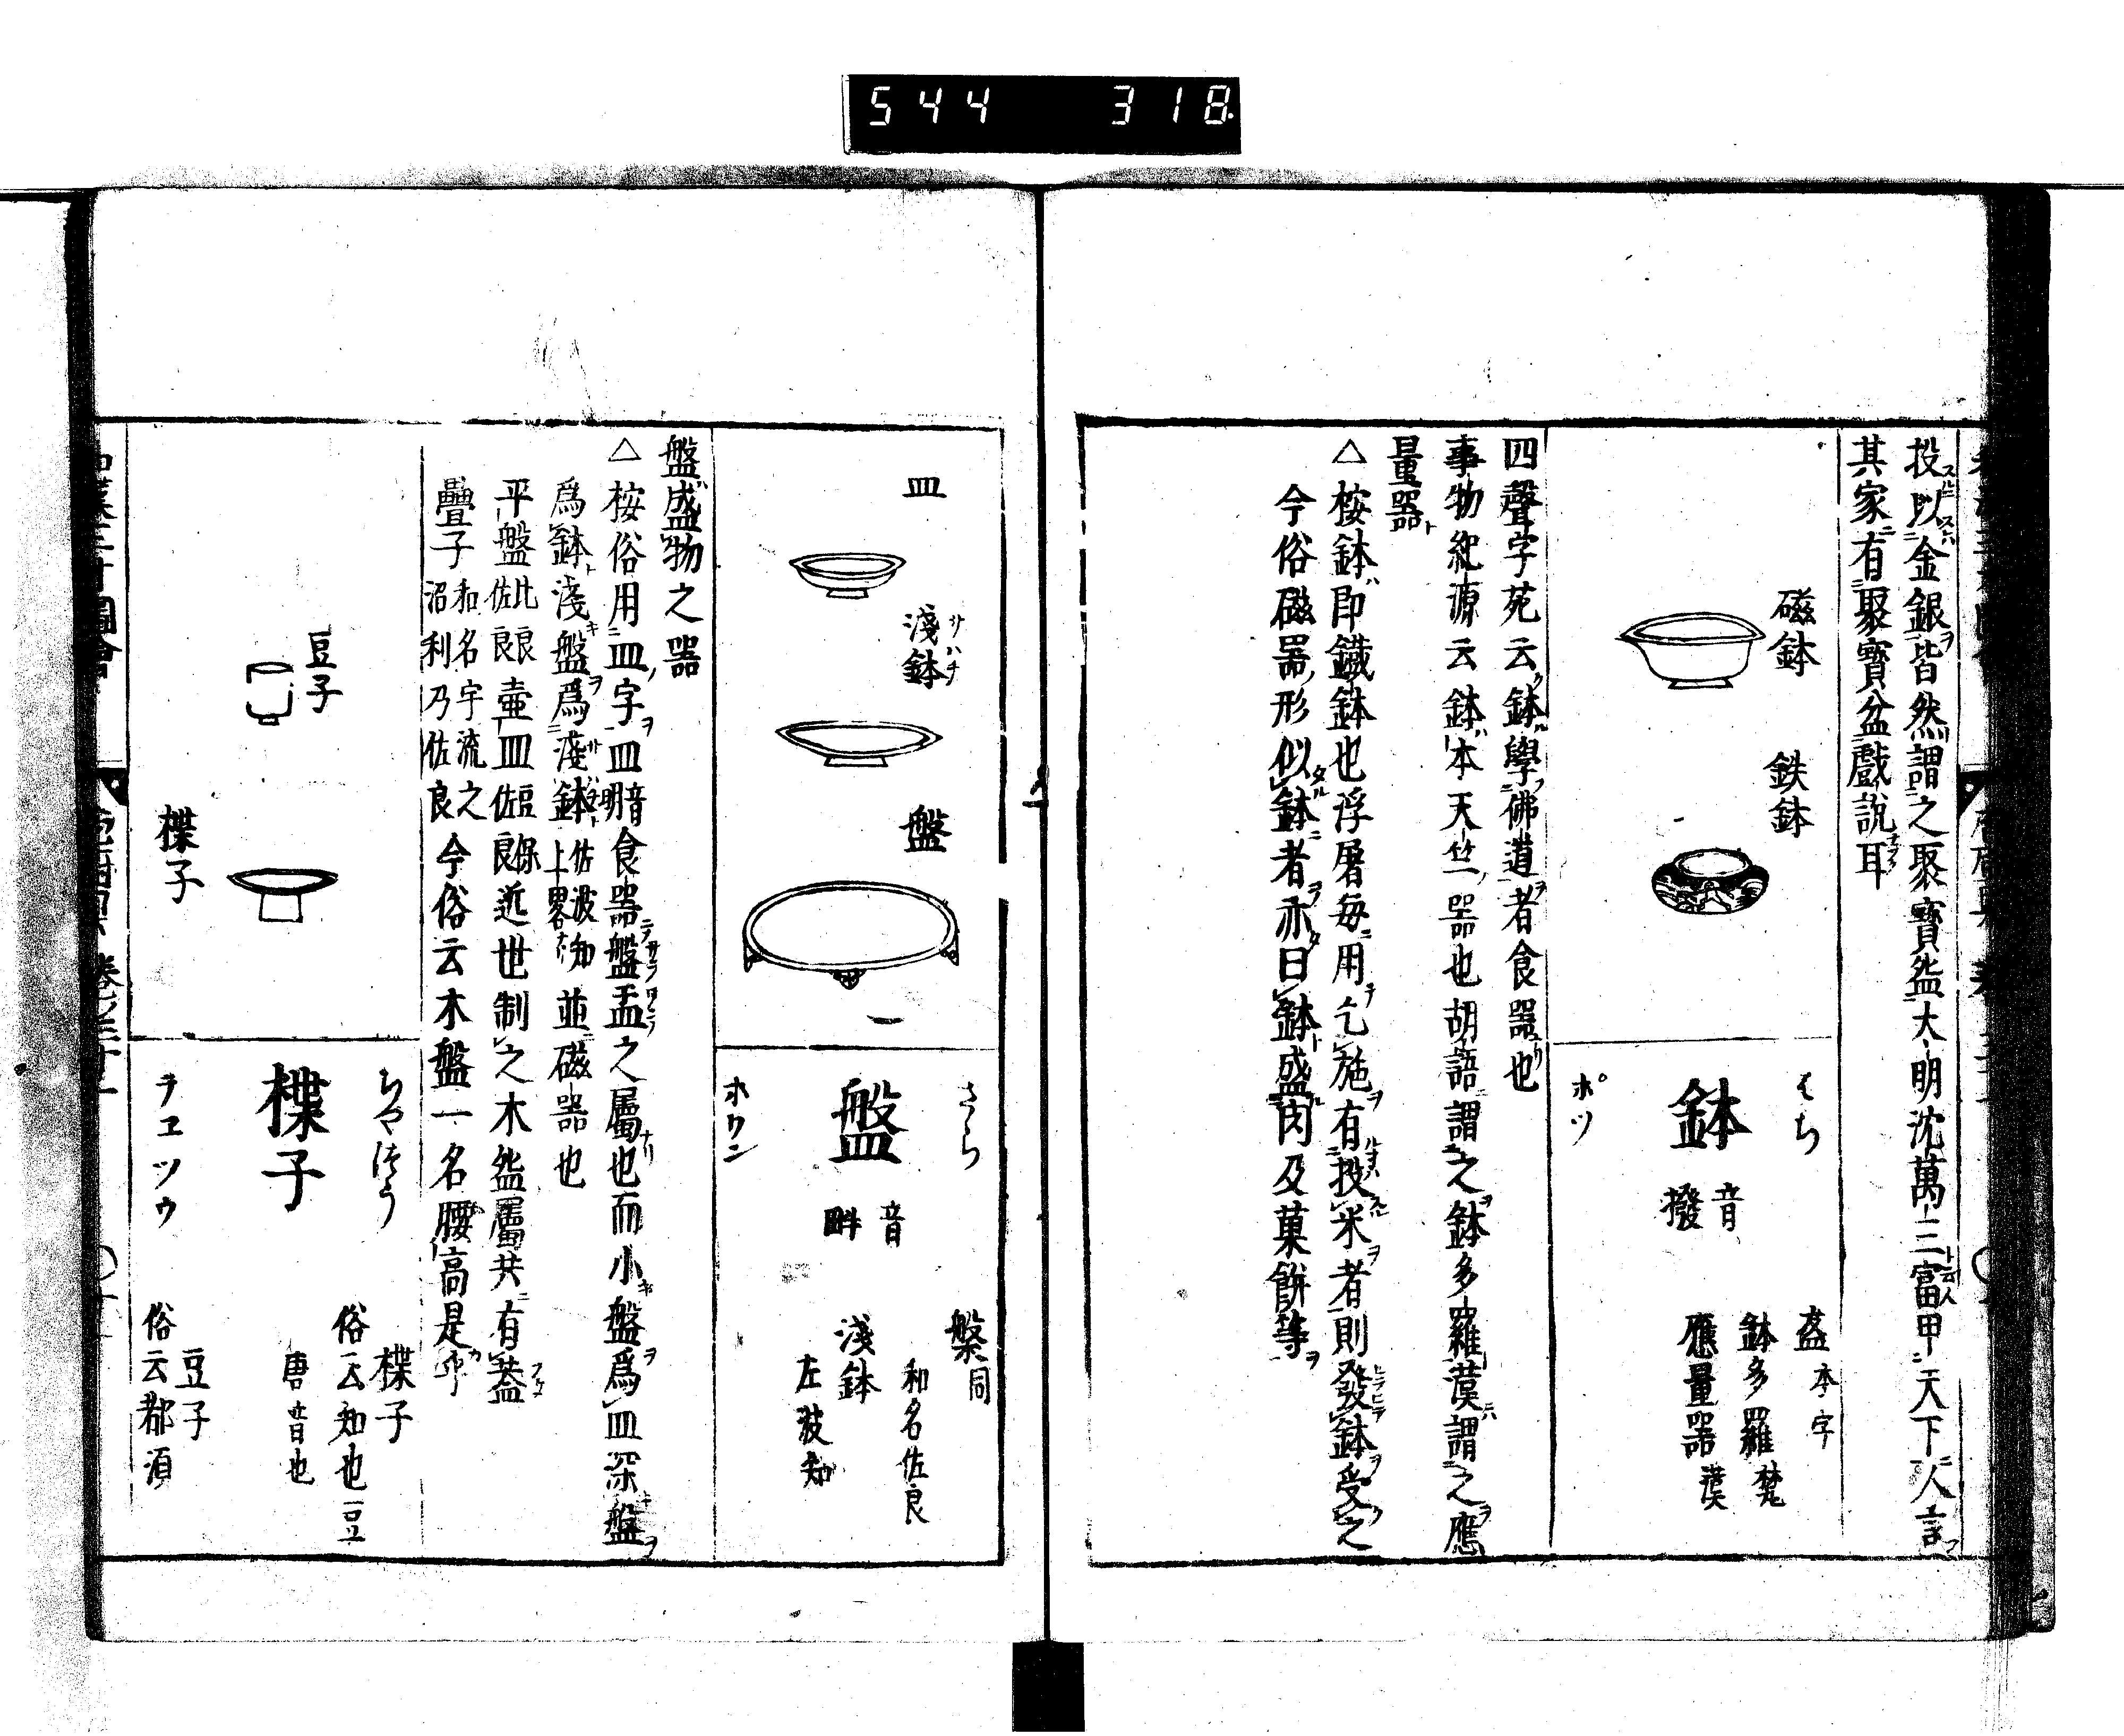 544 318
投以金銀皆然謂之聚寶盆大明沈萬三富甲天下人言
其家有聚寶盆戲說耳
磁鉢
鉄鉢
はち
鉢
音
撥
ポツ
盋本字
鉢多羅梵
應量器漢
四聲字苑云鉢學佛道者食器也
事物紀源云鉢本天竺器也胡語謂之鉢多羅漢謂之應
量器
△桉鉢即鐵鉢也浮屠每用乞施有投米者則發鉢受之
今俗磁器形似鉢者亦曰鉢盛肉及菓餅等
皿
淺鉢
サハチ
盤
さら
盤
音
畔
ホワン
槃同
和名佐良
淺鉢
左波知
盤盛物之器
△桉俗用皿字皿音明食器盤盂之屬也而小盤爲皿深盤
爲鉢淺盤爲淺鉢佐波知上畧並磁器也
平盤比良佐良壷皿豆保佐良近世制之木盆屬共有葢
疊子和名宇流之沼利乃佐良今俗云木盤一名腰高是乎
豆子
楪子
ちやつう
楪子
テエツウ
楪子
俗云知也豆
唐音也
豆子
俗云都須